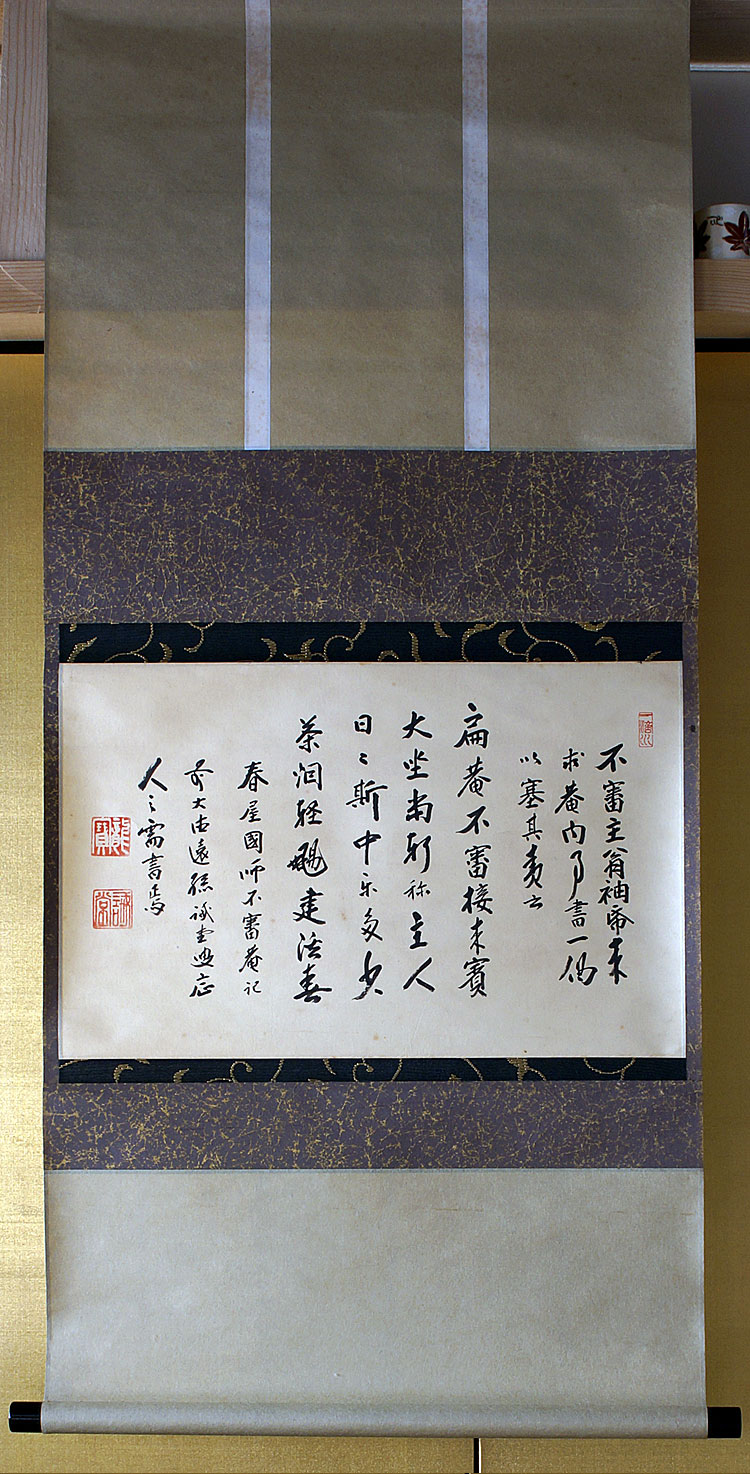 不審主翁袖帋来
求菴内了書一偈
以塞其責云
扁菴不審接来賓
大坐当軒称主人
日〻斯中示多少
茶洄軽颺建渓春
春屋國師不審菴記
前大徳遠孫誠堂応
人之需書焉